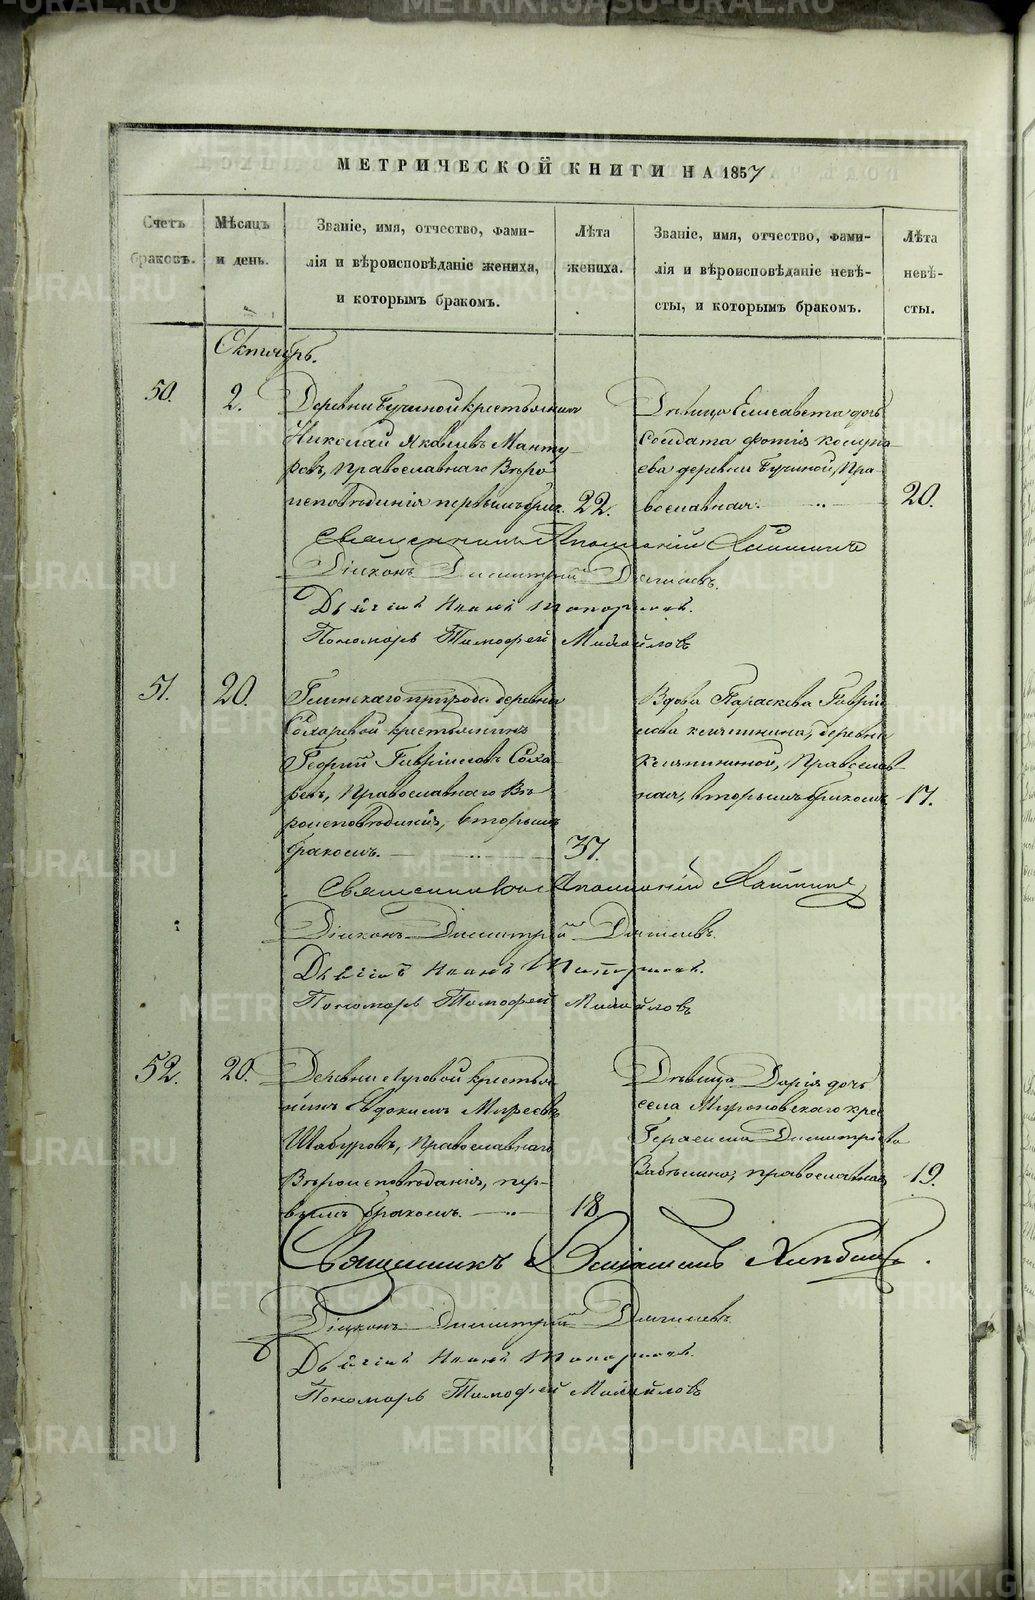 МЕТРИЧЕСКОЙ КНИГИ НА 1857
Счетъ браковъ.
Мѣсяцъ и день.
Званіе, имя, отчество, фами-
лія и вѣроисповѣданіе жениха,
и которымъ бракомъ.
Лѣта жениха.
Званіе, имя, отчество, фами-
лія и вѣроисповѣданіе невѣ-
сты, и которымъ бракомъ.
Лѣта невѣ-
сты.
Октябрь.
50.
2.
Деревни Бучиной крестьянинъ
Николай Яковлевъ Манту-
ровъ, Православнаго Вѣро
исповѣданія первымъ брак.
22.
Дѣвица Елисавета дочь
Солдата Фотія
деревни Бучиной, Пра-
вославная.
20.
Священникъ Аполлоній
Діаконъ Димитрій
Дьячокъ Иванъ Топорковъ.
Пономарь Тимофей Михайловъ
51.
20.
природа деревни
Сохаревой крестьянинъ
Георгій Гавріиловъ Соха-
ревъ, Православнаго Вѣ-
роисповѣданія, вторымъ
бракомъ.
37.
Вдова Параскева Гавріи-
лова деревни
Православ-
ная, вторымъ бракомъ
17.
Священникъ Аполлоній
Діаконъ Димитрій
Дьячокъ Иванъ Топорковъ.
Пономарь Тимофей Михайловъ
52.
20.
Деревни крестья
нинъ Евдокимъ
Шабуровъ, Православнаго
Вѣроисповѣданія, пер-
вымъ бракомъ.
18
Дѣвица Дарія дочь
села Мироновскаго крес
Герасима Димитріева
Забѣлина, православная,
19.
Священникъ Веніаминъ
Діаконъ Димитрій
Дьячокъ Иванъ Топорковъ.
Пономарь Тимофей Михайловъ
METRIKI.GASO-URAL.RU